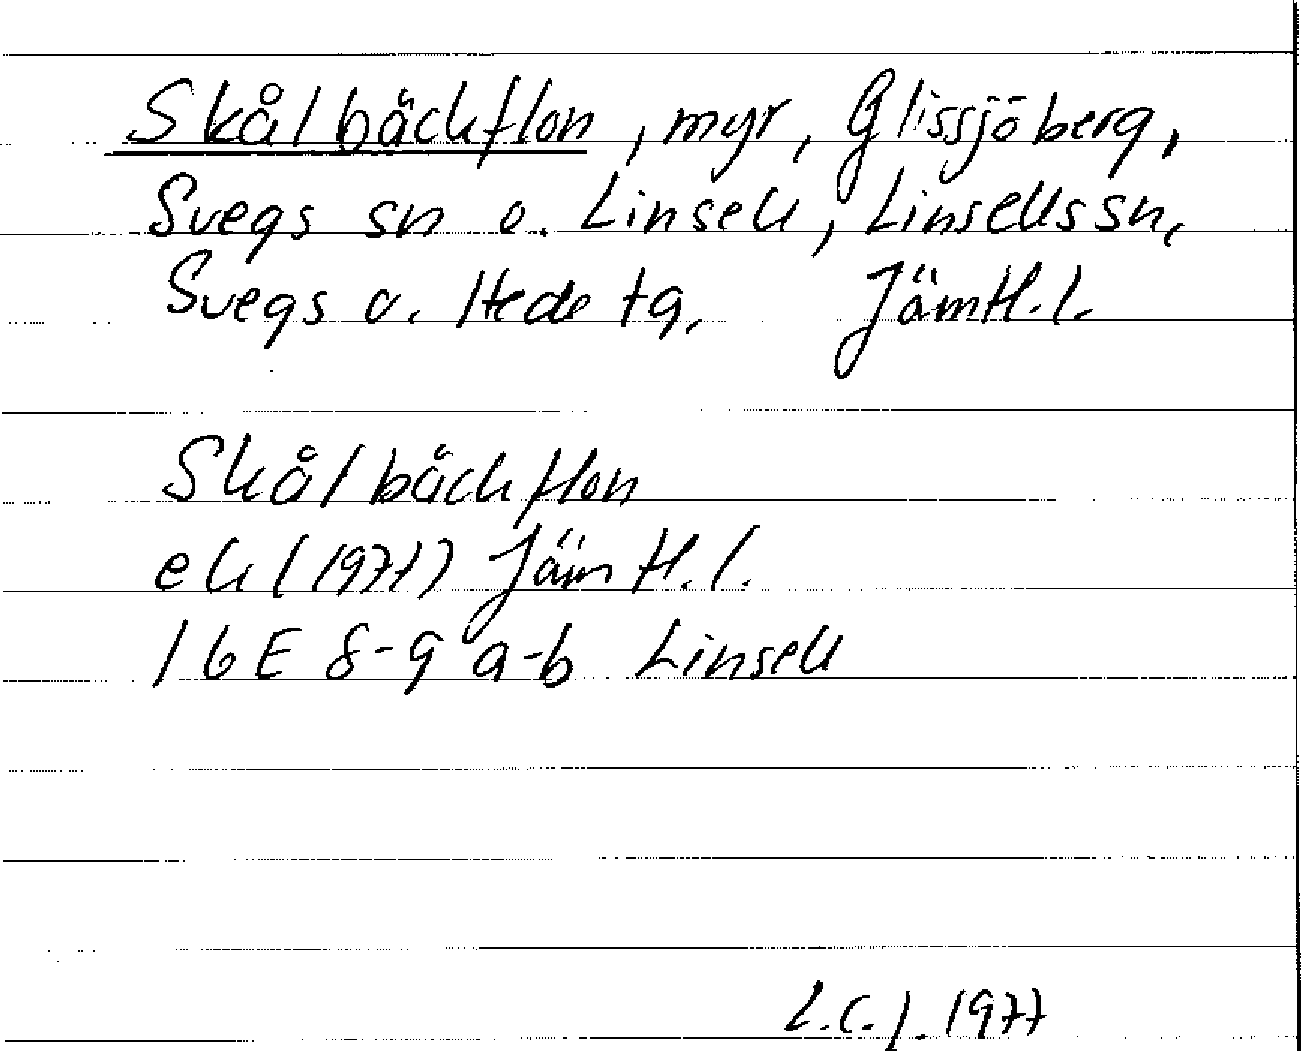 Skålbäckflon, myr, Glissjöberg,
Svegs sn o. Linsell, Linsells sn,
Svegs o. Hede tg, Jämtl. l.
Skålbäckflon
ek (1971) Jämtl. l.
16E 8-9 a-b Linsell
L.C.J. 1977